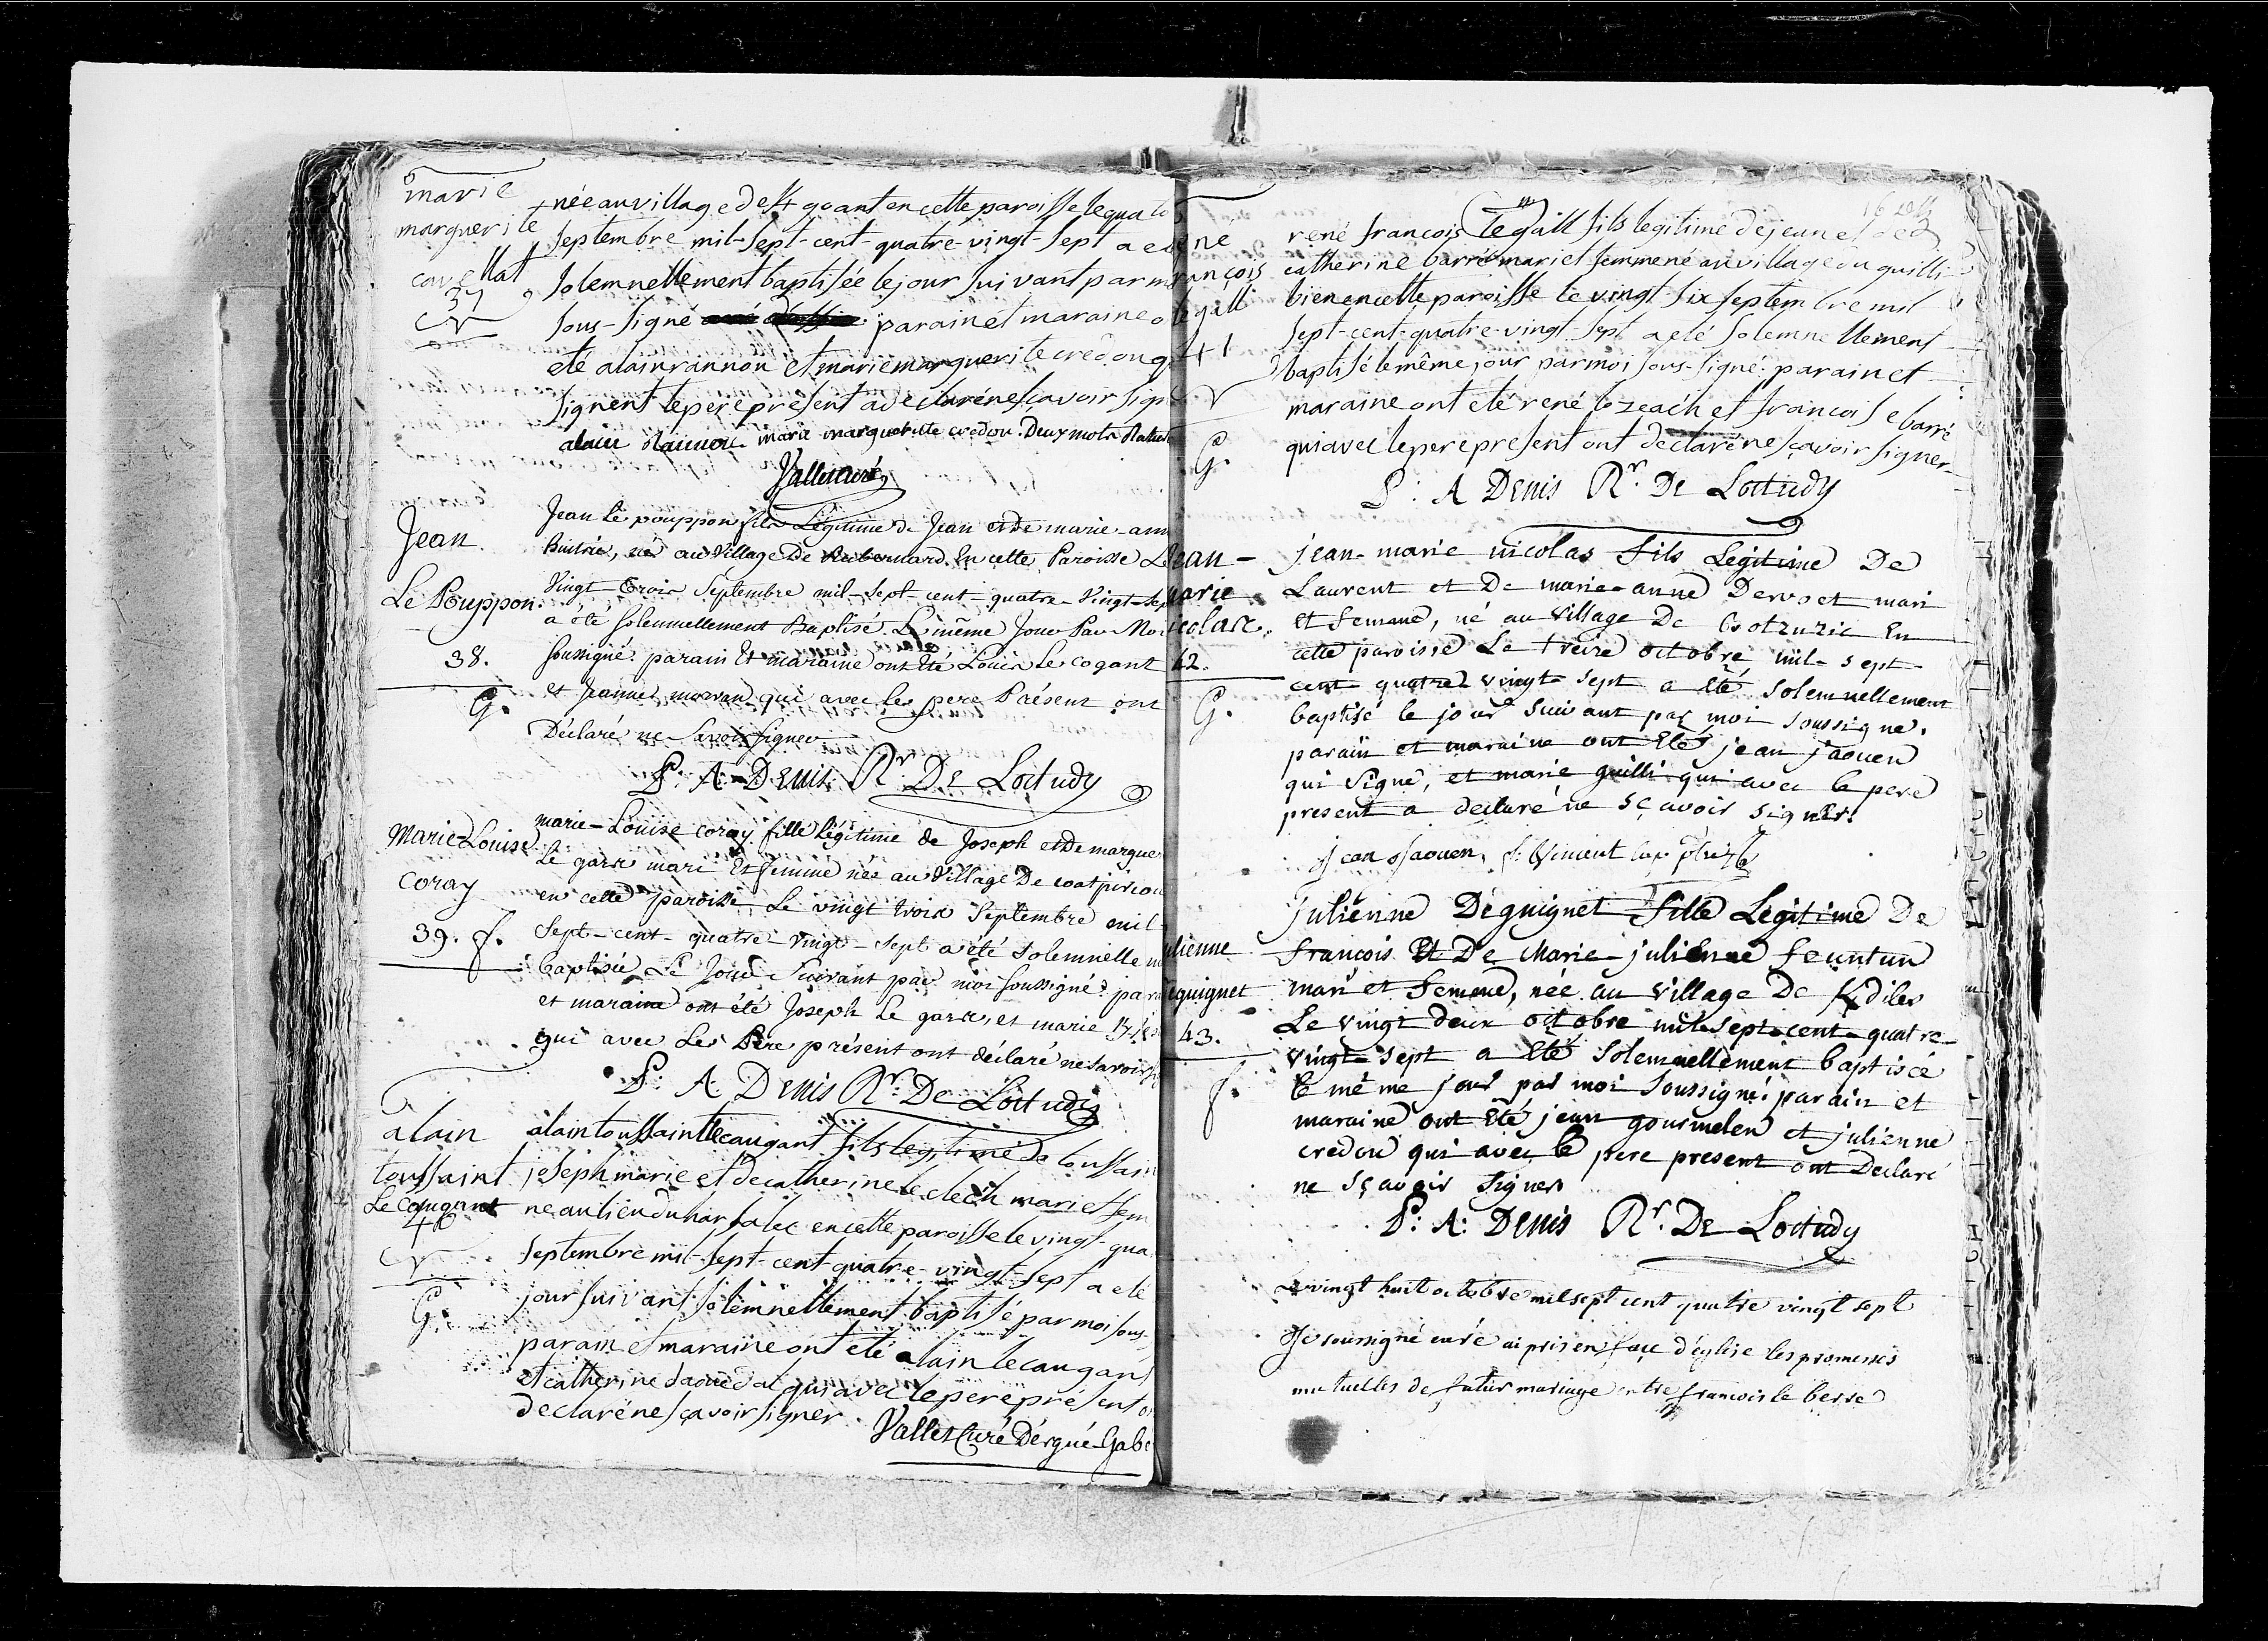 marie
marguerite
cavellat
37
née au village d' en cette paroisse le quato
septembre mil-sept-cent-quatre-vingt-sept a eté
solemnellement baptisée le jour suivant par m
sous-signé parain et maraine o
eté alain rannou et marie marguerite credou q
signent le pere present a declaré ne sçavoir sign
alain Rannou marie marguerite credou. Deux mots Raturé
Vallet curé
Jean
Le Pouppon
38.
G.
Jean le pouppon fils Légitime de Jean et de marie-ann
né au Village De En cette Paroisse Le
Vingt-Trois Septembre mil-sept-cent-quatre-Vingt-sep
a été solemnellement Baptisé Le même Jour Par Moi
soussigné. parain Et maraine ont été Louis Le cogant
et Jeanne morvan qui avec le pere Présent ont
Déclaré ne Savoir signer
P: A: Denis Rr. De Loctudy
Marie-Louise
coray
39. f.
marie-Louise coray fille légitime de Joseph et de margue
le garx mari Et femme née au Village De coatpirou
en cette paroisse Le vingt trois Septembre mil-
Sept-cent-quatre-vingt-sept a été Solemnelle m
baptisée Le Jour Suivant par moi soussigné: par
et maraine ont été Joseph Le garx, et marie
qui avec Le Père présent ont déclaré ne savoir
P: A. Denis Rr. De Loctudy
alain
toussaint
Le Caugant
40
G.
alain toussaint le caugant fils legitime de toussain
joseph marie et de catherine le cléch mari et fem
né au lieu du en cette paroisse le vingt-qua
septembre mil-sept-cent-quatre-vingt-sept a eté
jour suivant solemnellement baptisé par moi sous-
parain et maraine ont eté alain le caugant
et catherine qui avec le pere présent o
declaré ne sçavoir signer.
Vallet Curé Dérgué-Gabe
né
rançois
le gall
41
G.
rené françois le gall fils legitime de jean et de
catherine barré mari et femme né au village du quilli
bien en cette paroisse le vingt-six septembre mil
sept-cent-quatre-vingt-sept a eté solemnellement
baptisé le même jour par moi sous-signé: parain et
maraine ont eté rené le zeac'h et françoise barré
qui avec le pere present ont declaré ne sçavoir signer
P: A Denis Rr. De Loctudy
ean-
marie
icolas.
42.
G.
jean-marie nicolas fils Legitime De
Laurent et De marie-anne Dervoet mari
et femme, né au village De En
cette paroisse Le treize octobre mil-sept-
cent quatre vingt-sept a Eté solemnellement
baptisé le jour suivant par moi soussigné.
parain et maraine ont Eté jean jaouen
qui signe, et marie guilli qui avec le pere
present a declaré ne sçavoir signer.
jean jaouen
ulienne
eguignet
43.
f.
julienne Déguignet fille Légitime De
françois Et De Marie-julienne feuntun
mari et femme, née au village De Kdiles
Le vingt deux octobre mil-sept-cent-quatre-
vingt-sept a Eté solemnellement baptiscé
le même jour par moi soussigné: parain et
maraine ont Eté jean gourmelen et julienne
credou qui avec le pere present ont Declaré
ne sçavoir signer
P: A: Denis Rr. De Loctudy
Le vingt huit octobre mil sept cent quatre vingt sept
Je soussigné curé ai pris en face d'église les promesses
mutuelles de futur mariage entre francois le berre